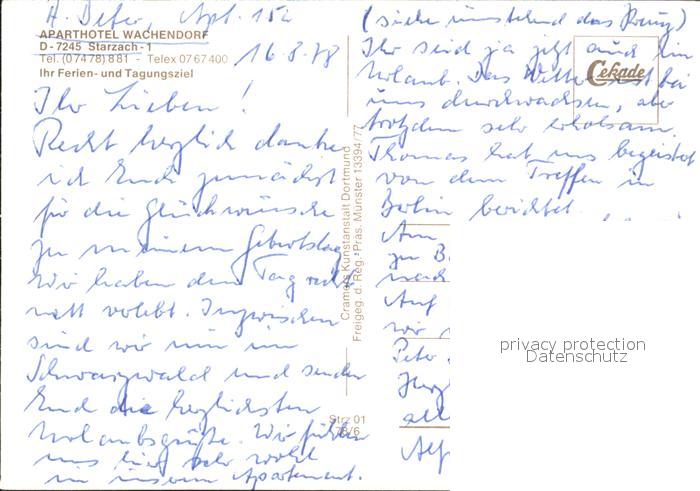 Apt. 152
APARTHOTEL WACHENDORF
D-7245 Starzach-1
Tel. (07478) 881 - Telex 0767400
Ihr Ferien- und Tagungsziel
16.8.78
Ihr Lieben!
Recht herzlich danke
ich Euch zunächst
für die Glückwünsche
zu meinem Geburtstag
Wir haben den Tag recht
nett verlebt. Inzwischen
sind wir nun im
Schwarzwald und senden
Euch die herzlichsten
Urlaubsgrüße. Wir fühlen
uns hier sehr wohl
in unserem Apartement.
Cramers Kunstanstalt Dortmund
Freigeg. d. Reg.-Präs. Münster 13394/77
Strz 01
78/6
(siehe umstehend das Kreuz)
Ihr seid ja jetzt auch im
Urlaub. Das Wetter ist bei
uns durchwachsen, aber
trotzdem sehr erholsam.
Thomas hat uns begeistert
von dem Treffen in
Berlin berichtet.
Cekade
Am
zu B
nach
Auf
wir
Peter
all
privacy protection
Datenschutz